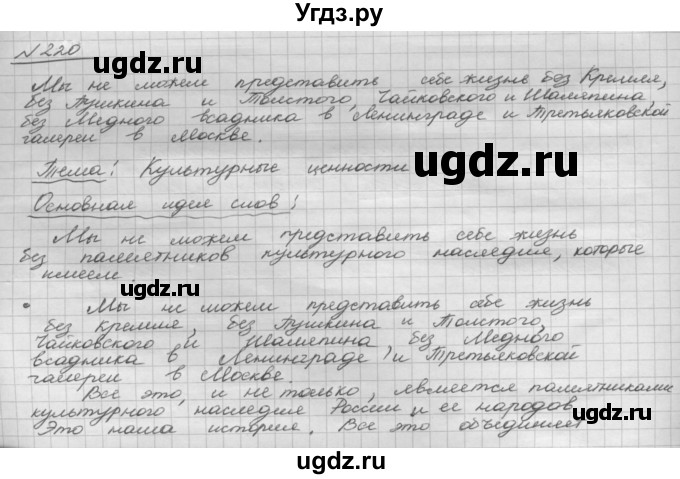 Угдз.ру
№220
Мы не можем представить себе жизнь без Кремля,
без Пушкина и Толстого, Чайковского и Шаляпина,
без Медного всадника в Ленинграде и Третьяковской
галереи в Москве.
Тема: Культурные ценности
Основная идея слов:
Мы не можем представить себе жизнь
без памятников культурного наследия, которые
имеем
• Мы не можем представить себе жизнь
без Кремля, без Пушкина и Толстого,
Чайковского и Шаляпина, без Медного
всадника в Ленинграде и Третьяковской
галереи в Москве.
Все это, и не только, является памятниками
культурного наследия России и ее народов.
Это наша история. Все это объединяет
ugdz.ru
ugdz.ru
ugdz.ru
ugdz.ru
ugdz.ru
ugdz.ru
ugdz.ru
ugdz.ru
ugdz.ru
ugdz.ru